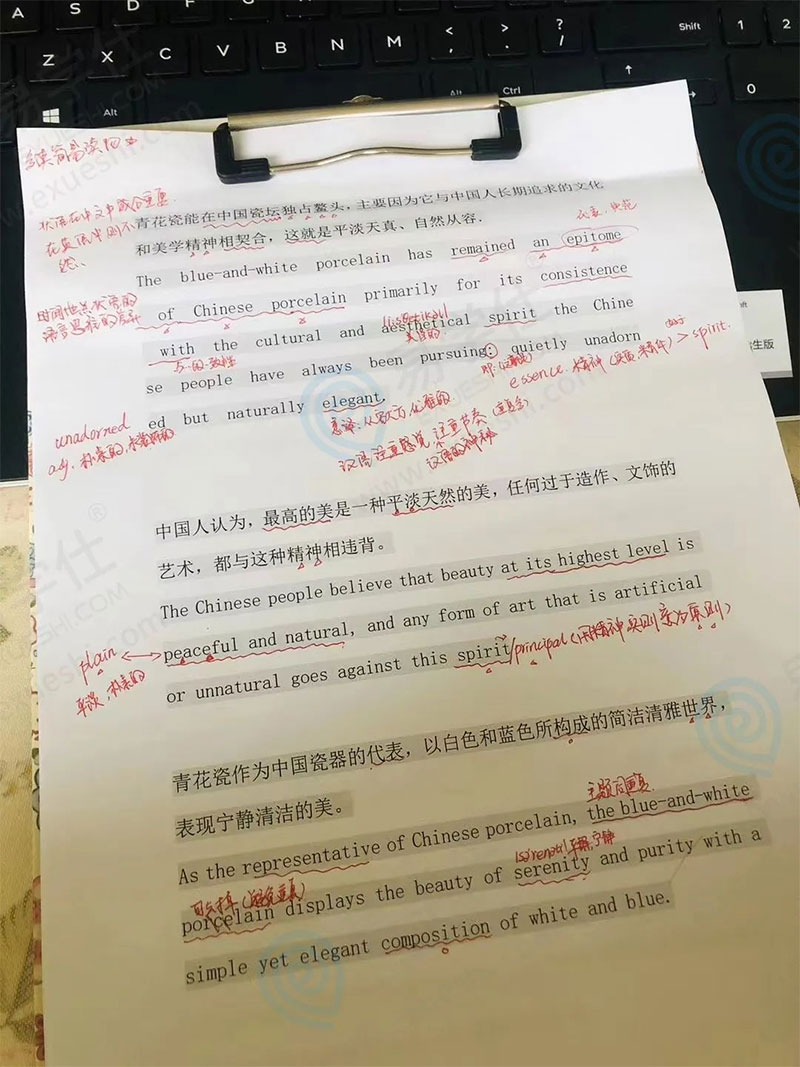 A S D F G H J K L
Z X C V B N M < , > . ? / Shift 1 2
Alt Alt Ctrl 0
状语在中文中或合重要
青花瓷能在中国瓷坛独占鳌头，主要因为它与中国人长期追求的文化
和美学精神相契合，这就是平淡天真、自然从容.
The blue-and-white porcelain has remained an epitome
of Chinese porcelain primarily for its consistence
with the cultural and aesthetical spirit the Chine
se people have always been pursuing: quietly unadorn
ed but naturally elegant.
时间地点状语的
与·的一致性
美学的
essence 精神 > spirit.
unadorned
adj. 朴素的,
意译 从容为优雅的
汉语注重感觉, 注重节奏
中国人认为，最高的美是一种平淡天然的美，任何过于造作、文饰的
艺术，都与这种精神相违背。
The Chinese people believe that beauty at its highest level is
peaceful and natural, and any form of art that is artificial
or unnatural goes against this spirit/principal (用精神实则亦为原则)
plain
平淡,朴素的
青花瓷作为中国瓷器的代表，以白色和蓝色所构成的简洁清雅世界，
表现宁静清洁的美。
主题同重复
As the representative of Chinese porcelain, the blue-and-white
可去掉 (避免重复) 平静,宁静
porcelain displays the beauty of serenity and purity with a
simple yet elegant composition of white and blue.
生版